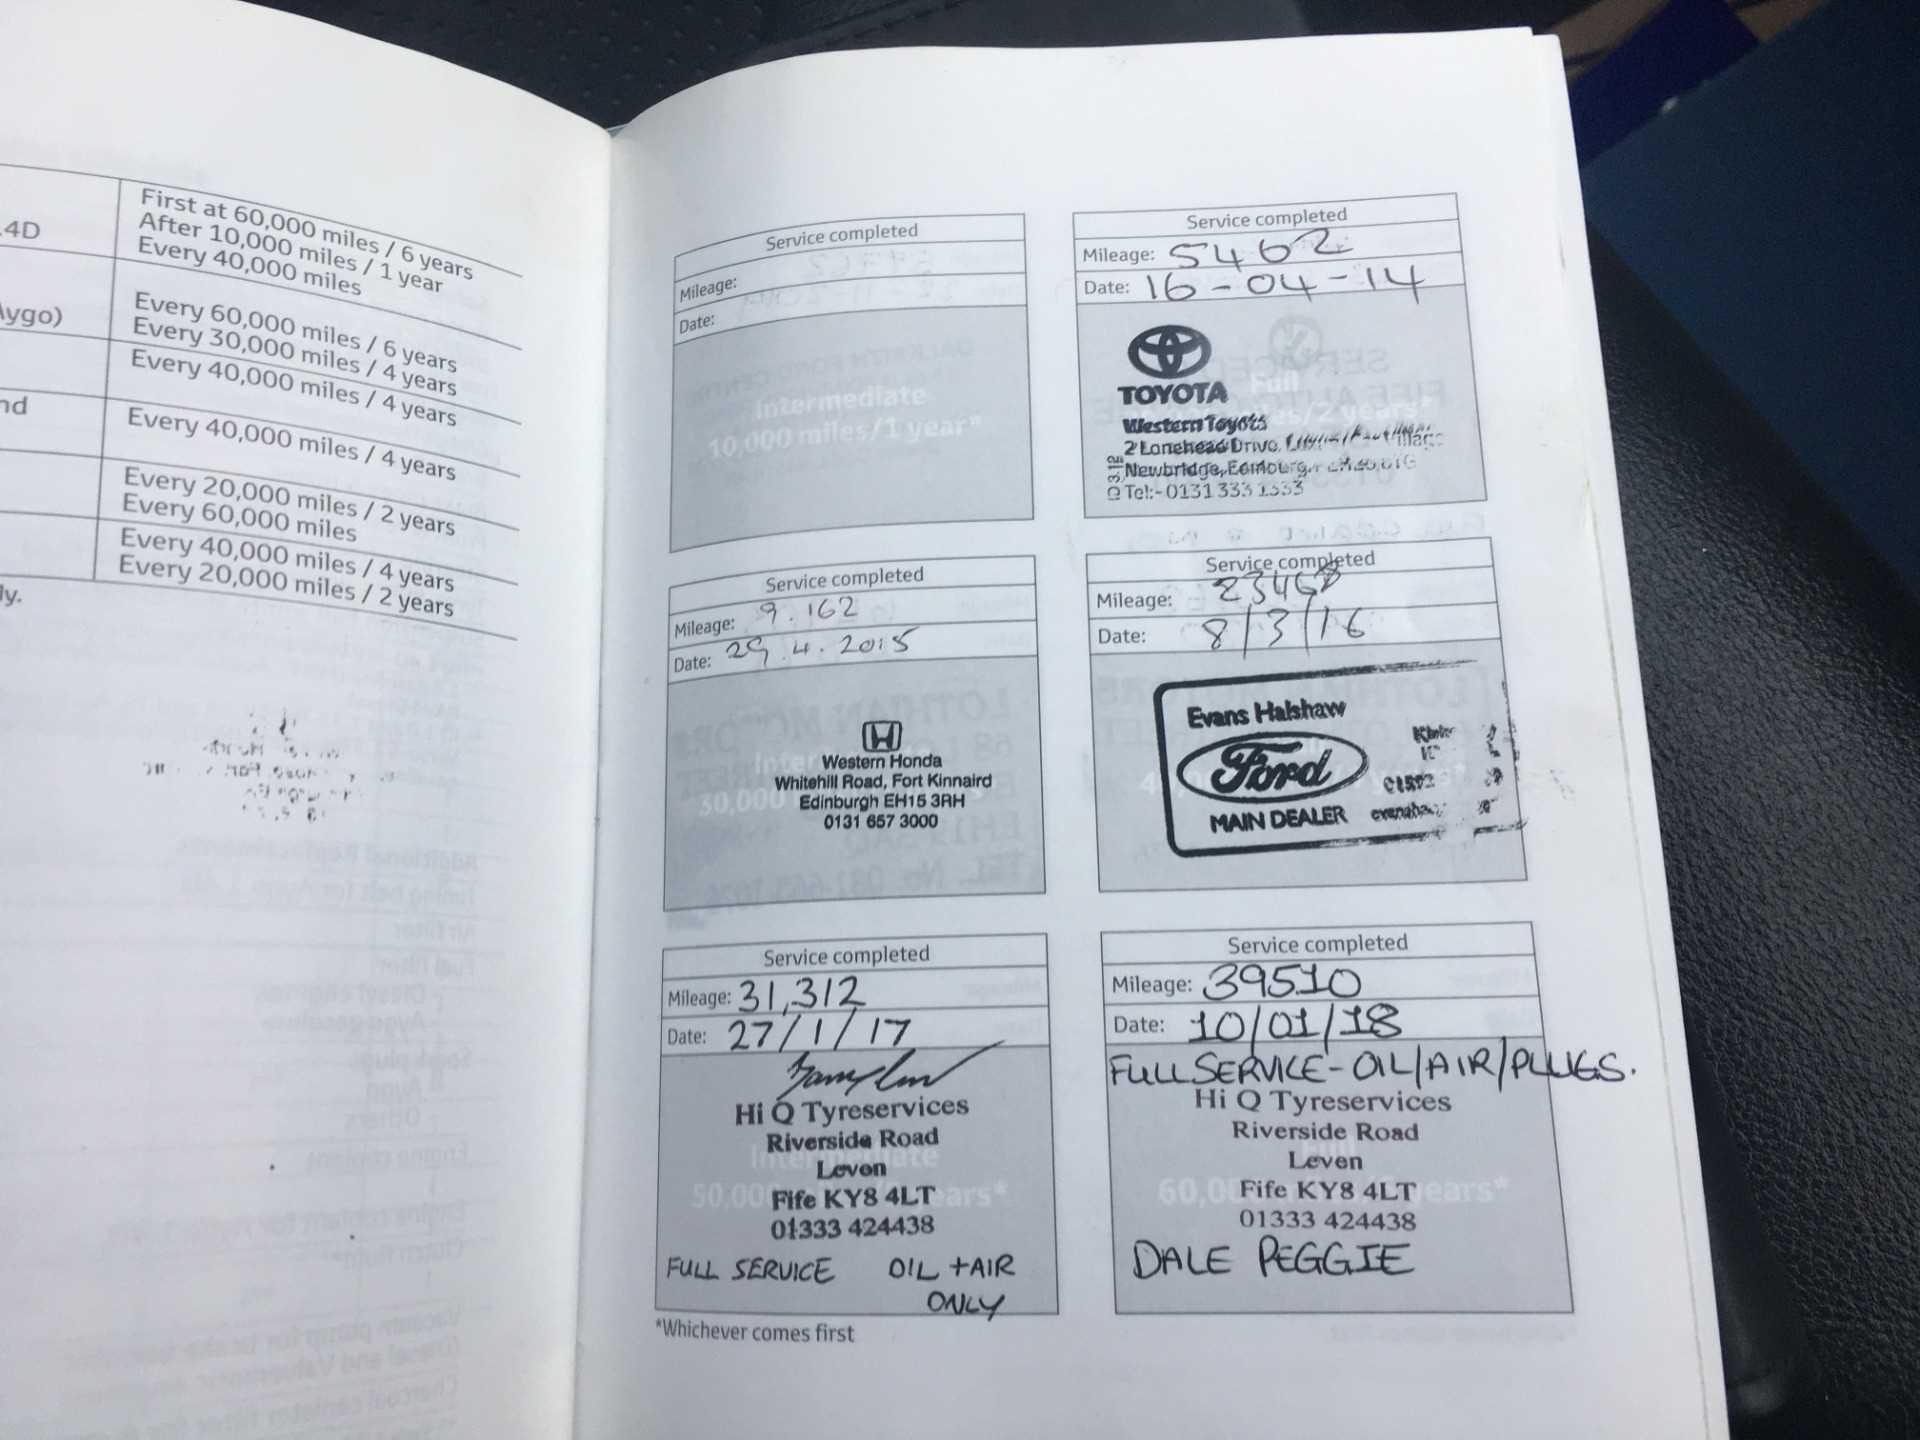 .4D
First at 60,000 miles / 6 years
After 10,000 miles / 1 year
Every 40,000 miles
Aygo)
Every 60,000 miles / 6 years
Every 30,000 miles / 4 years
Every 40,000 miles / 4 years
nd
Every 40,000 miles / 4 years
Every 20,000 miles / 2 years
Every 60,000 miles
Every 40,000 miles / 4 years
Every 20,000 miles / 2 years
ly.
Service completed
Mileage:
Date:
Intermediate
10,000 miles/1 year*
Service completed
Mileage: 5462
Date: 16-04-14
Full
/2 years*
TOYOTA
Western Toyota
2 Lonehead Drive,
Newbridge,
Tel:- 0131 333 1333
Service completed
Mileage: 9.162
Date: 29.4.2015
Western Honda
Whitehill Road, Fort Kinnaird
Edinburgh EH15 3RH
0131 657 3000
30,000
Service completed
Mileage: 23468
Date: 8/3/16
Evans Halshaw
Ford
MAIN DEALER
Service completed
Mileage: 31,312
Date: 27/1/17
Hi Q Tyreservices
Riverside Road
Leven
Fife KY8 4LT
01333 424438
Intermediate
50,000 years*
FULL SERVICE OIL + AIR
ONLY
Service completed
Mileage: 39510
Date: 10/01/18
FULL SERVICE - OIL/AIR/PLUGS.
Hi Q Tyreservices
Riverside Road
Leven
Fife KY8 4LT
01333 424438
60,0 years*
DALE PEGGIE
*Whichever comes first